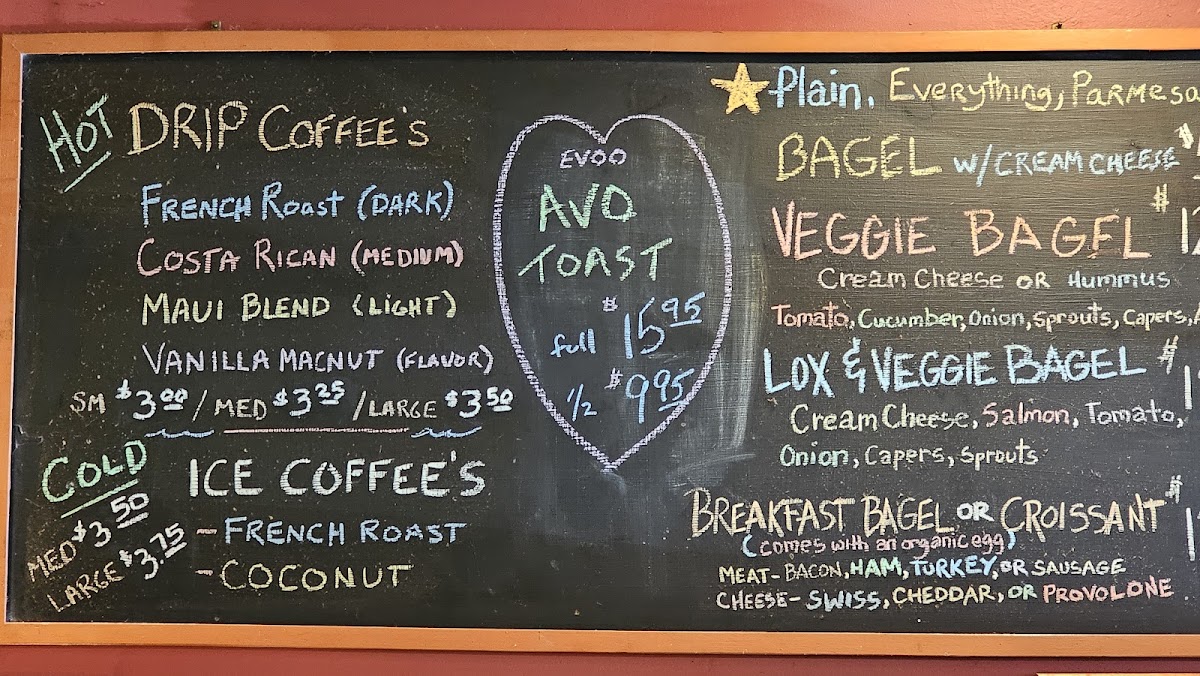 HOT DRIP COFFEE'S
FRENCH ROAST (DARK)
COSTA RICAN (MEDIUM)
MAUI BLEND (LIGHT)
VANILLA MACNUT (FLAVOR)
SM $3.00 / MED $3.25 / LARGE $3.50
COLD ICE COFFEE'S
MED $3.50
LARGE $3.75
- FRENCH ROAST
- COCONUT
EVOO
AVO
TOAST
full $15.95
1/2 $9.95
Plain, Everything, PARMESA
BAGEL W/CREAM CHEESE $
VEGGIE BAGEL $
Cream Cheese OR Hummus
Tomato, Cucumber, Onion, Sprouts, Capers,
LOX & VEGGIE BAGEL $
Cream Cheese, Salmon, Tomato,
Onion, Capers, Sprouts
BREAKFAST BAGEL OR CROISSANT $
(comes with an organic egg)
MEAT- BACON, HAM, TURKEY, OR SAUSAGE
CHEESE- SWISS, CHEDDAR, OR PROVOLONE